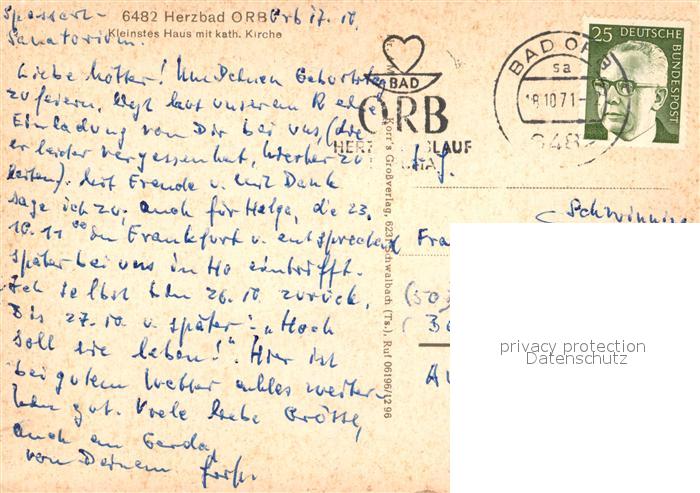 Spessart- 6482 Herzbad ORB Orb 17. 10.
Sanatorium. Kleinstes Haus mit kath. Kirche
Liebe Mutter! Um Deinen Geburtstag
zu feiern, liegt laut unserem
Einladung von Dir bei uns, (die
er leider vergessen hat, hierher zu
leiten). Mit Freude u. mit Dank
sage ich zu; auch für Helga, die 23.
10. 11⁰⁰ in Frankfurt u. entsprechend
später bei uns in Ho eintrifft.
Ich selbst bin 26.10. zurück.
Bis 27.10. u. später: "Hoch
soll sie leben!". Hier ist
bei gutem Wetter alles weiter-
hin gut. Viele liebe Grüsse,
auch an Gerda,
von Deinem
BAD
ORB
HERZ LAUF
BAD ORB
sa
18.10.71
648
25 DEUTSCHE
BUNDESPOST
Korr's Großverlag, 6231 Schwalbach (Ts.), Ruf 06196/1296
Fra
privacy protection
Datenschutz